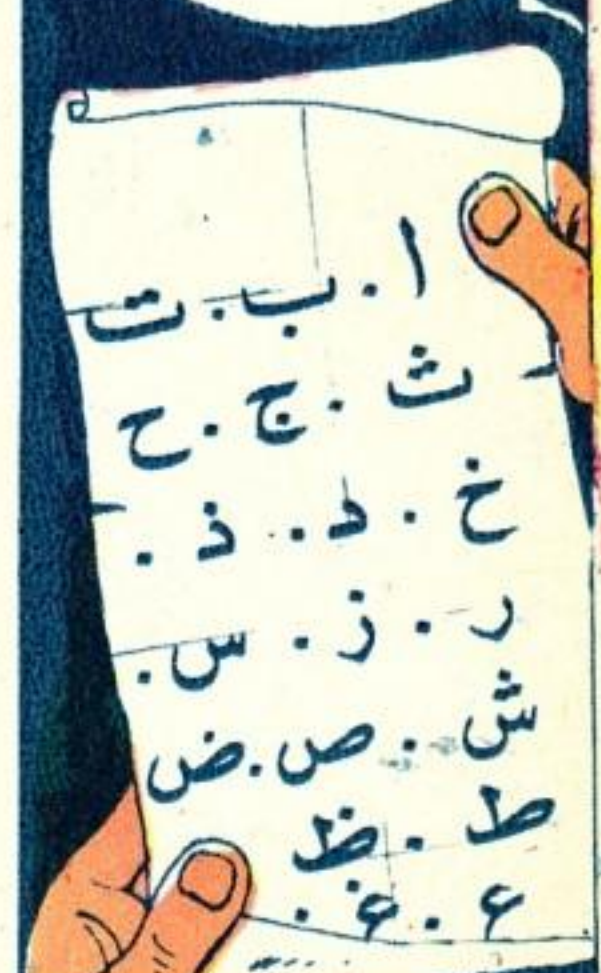 ا . ب . ت
ث . ج . ح
خ . د . ذ .
ر . ز . س .
ش . ص . ض
ط . ظ
ع . غ .